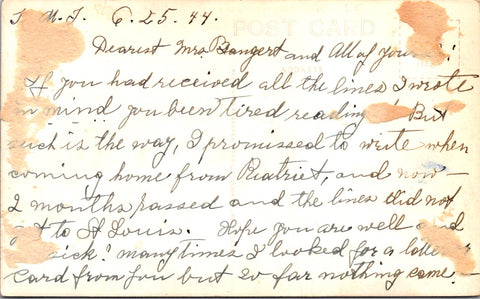 J. M. J. 6. 25. 44.
POST CARD
Dearest Mrs Bangert and All of you !
If you had received all the lines I wrote
in mind you been tired reading ! But
such is the way, I promissed to write when
coming home from and now –
2 months passed and the lines did not
get to St Louis. Hope you are well and
sick! many times I looked for a
card from you but so far nothing came –